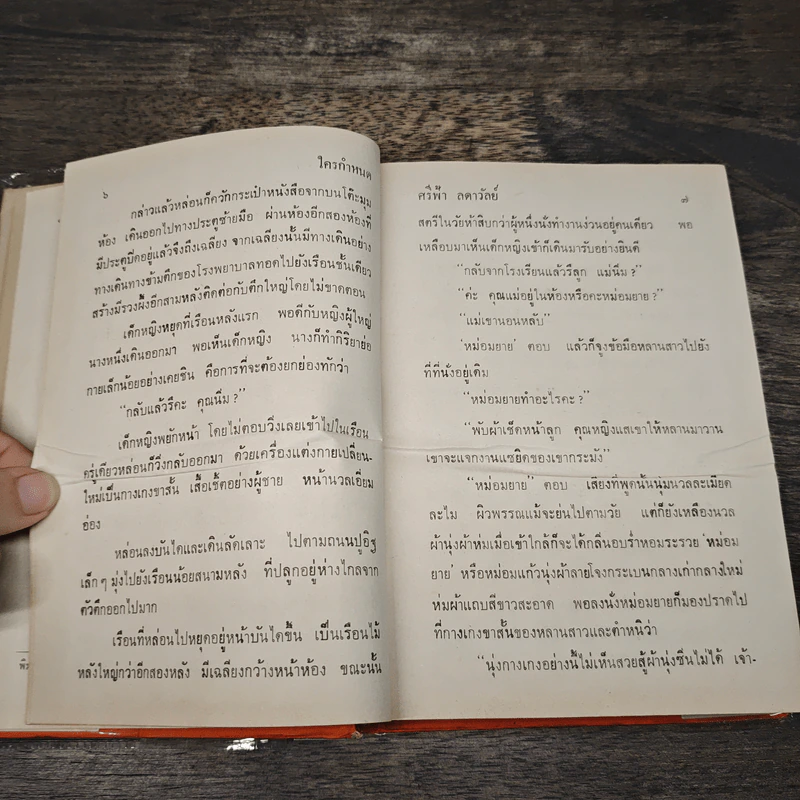 ใครกำหนด
๖
กล่าวแล้วหล่อนก็คว้ากระเป๋าหนังสือจากบนโต๊ะมุม
ห้อง เดินออกไปทางประตูซ้ายมือ ผ่านห้องอีกสองห้องที่
มีประตูปิดอยู่แล้วจึงถึงเฉลียง จากเฉลียงนั้นมีทางเดินอย่าง
ทางเดินทางข้ามตึกของโรงพยาบาลทอดไปยังเรือนชั้นเดียว
สร้างมีรวงผึ้งอีกสามหลังติดต่อกับตึกใหญ่โดยไม่ขาดตอน
เด็กหญิงหยุดที่เรือนหลังแรก พอดีกับหญิงผู้ใหญ่
นางหนึ่งเดินออกมา พอเห็นเด็กหญิง นางก็ทำกิริยาย่อ
กายเล็กน้อยอย่างเคยชิน คือการที่จะต้องยกย่องทักว่า
“กลับแล้วรึคะ คุณนีม ?”
เด็กหญิงพยักหน้า โดยไม่ตอบวิ่งเลยเข้าไปในเรือน
ครู่เดียวหล่อนก็วิ่งกลับออกมา ด้วยเครื่องแต่งกายเปลี่ยน-
ใหม่เป็นกางเกงขาสั้น เสื้อเชิ้ตอย่างผู้ชาย หน้านวลเอี่ยม
อ่อง
หล่อนลงบันไดและเดินลัดเลาะ ไปตามถนนปูอิฐ
เล็ก ๆ มุ่งไปยังเรือนน้อยสนามหลัง ที่ปลูกอยู่ห่างไกลจาก
ตัวตึกออกไปมาก
เรือนที่หล่อนไปหยุดอยู่หน้าบันไดขึ้น เป็นเรือนไม้
หลังใหญ่กว่าอีกสองหลัง มีเฉลียงกว้างหน้าห้อง ขณะนั้น
ศรีฟ้า ลดาวัลย์
๗
สตรีในวัยห้าสิบกว่าผู้หนึ่งนั่งทำงานง่วนอยู่คนเดียว พอ
เหลือบมาเห็นเด็กหญิงเข้าก็เดินมารับอย่างยินดี
“กลับจากโรงเรียนแล้วรึลูก แม่นีม ?”
“ค่ะ คุณแม่อยู่ในห้องหรือคะหม่อมยาย ?”
“แม่เขานอนหลับ”
‘หม่อมยาย’ ตอบ แล้วก็จูงข้อมือหลานสาวไปยัง
ที่ที่นั่งอยู่เดิม
“หม่อมยายทำอะไรคะ ?”
“พับผ้าเช็ดหน้าลูก คุณหญิงแสเขาให้หลานมาวาน
เขาจะแจกงานแซยิดของเขากระมัง”
“หม่อมยาย” ตอบ เสียงที่พูดนั้นนุ่มนวลละเมียด
ละไม ผิวพรรณแม้จะย่นไปตามวัย แต่ก็ยังเหลืองนวล
ผ้านุ่งผ้าห่มเมื่อเข้าใกล้ก็จะได้กลิ่นอบร่ำหอมระรวย ‘หม่อม
ยาย’ หรือหม่อมแก้วนุ่งผ้าลายโจงกระเบนกลางเก่ากลางใหม่
ห่มผ้าแถบสีขาวสะอาด พอลงนั่งหม่อมยายก็มองปราดไป
ที่กางเกงขาสั้นของหลานสาวและตำหนิว่า
“นุ่งกางเกงอย่างนี้ไม่เห็นสวยสู้ผ้านุ่งซิ่นไม่ได้ เจ้า-